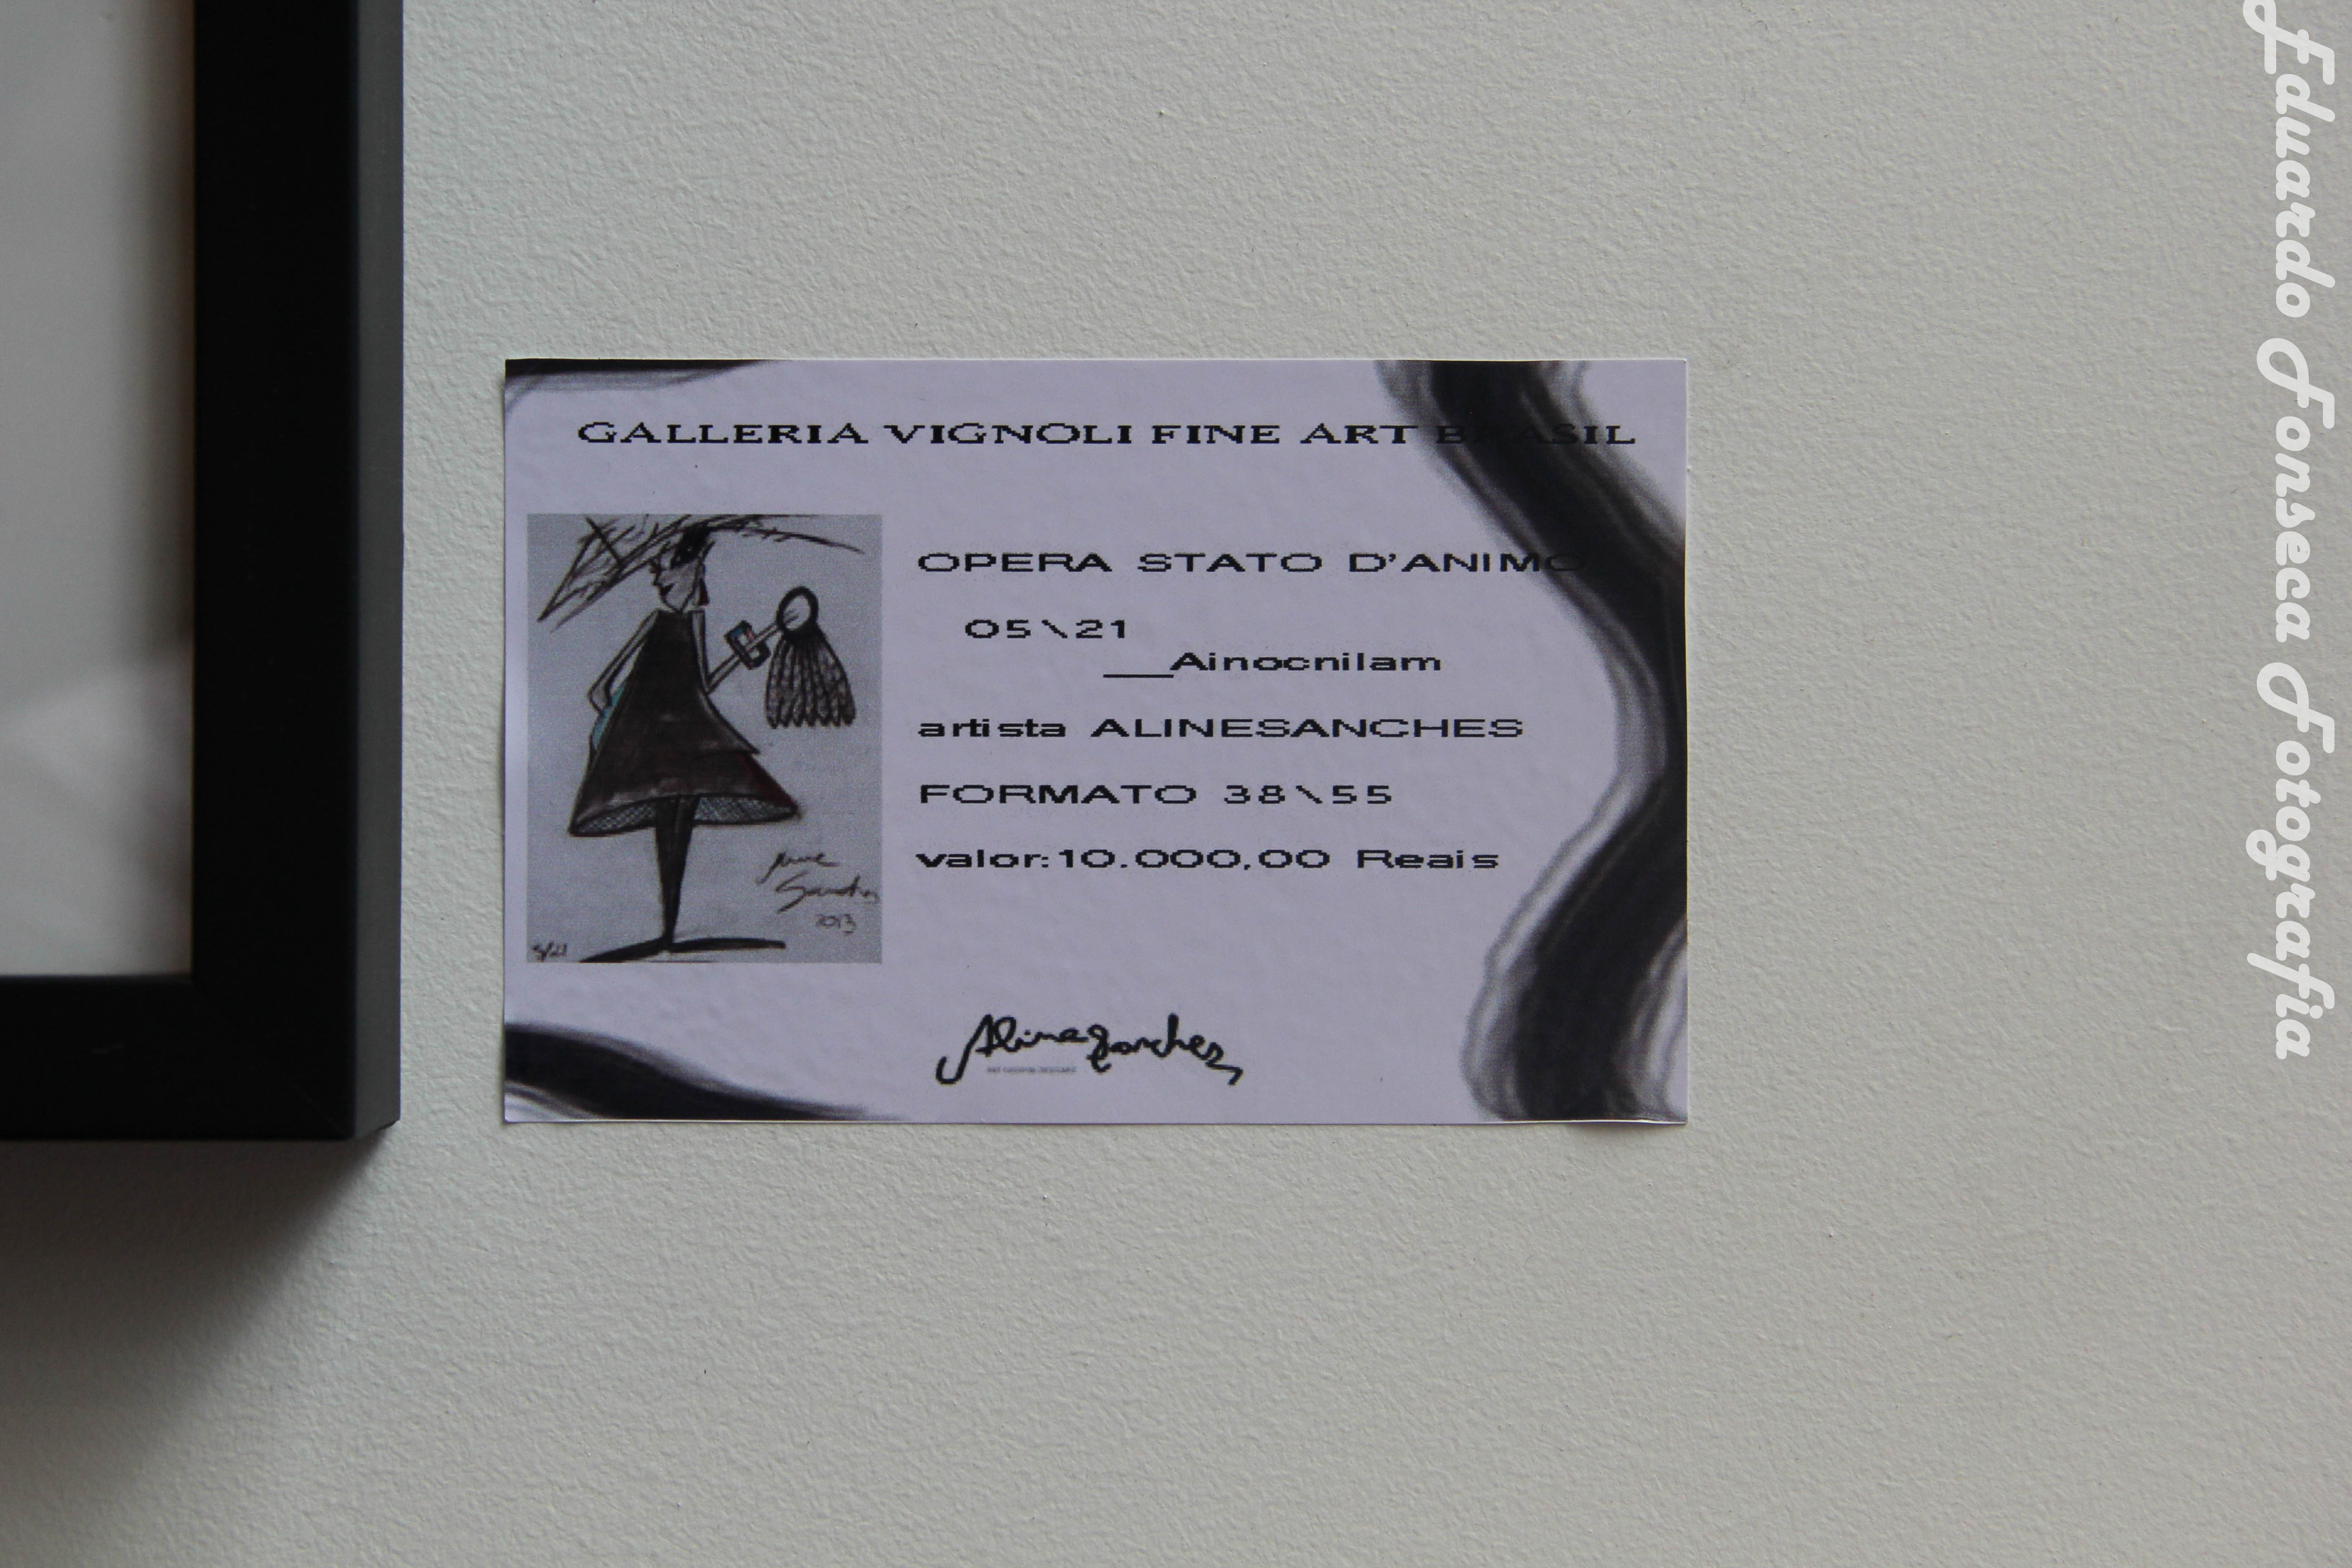 GALLERIA VIGNOLI FINE ART BRASIL
OPERA STATO D'ANIMO
05\21
___Ainocnilam
artista ALINESANCHES
FORMATO 38\55
valor:10.000,00 Reais
Sanches
2013
5/21
Alinesanches
Eduardo Fonseca Fotografia